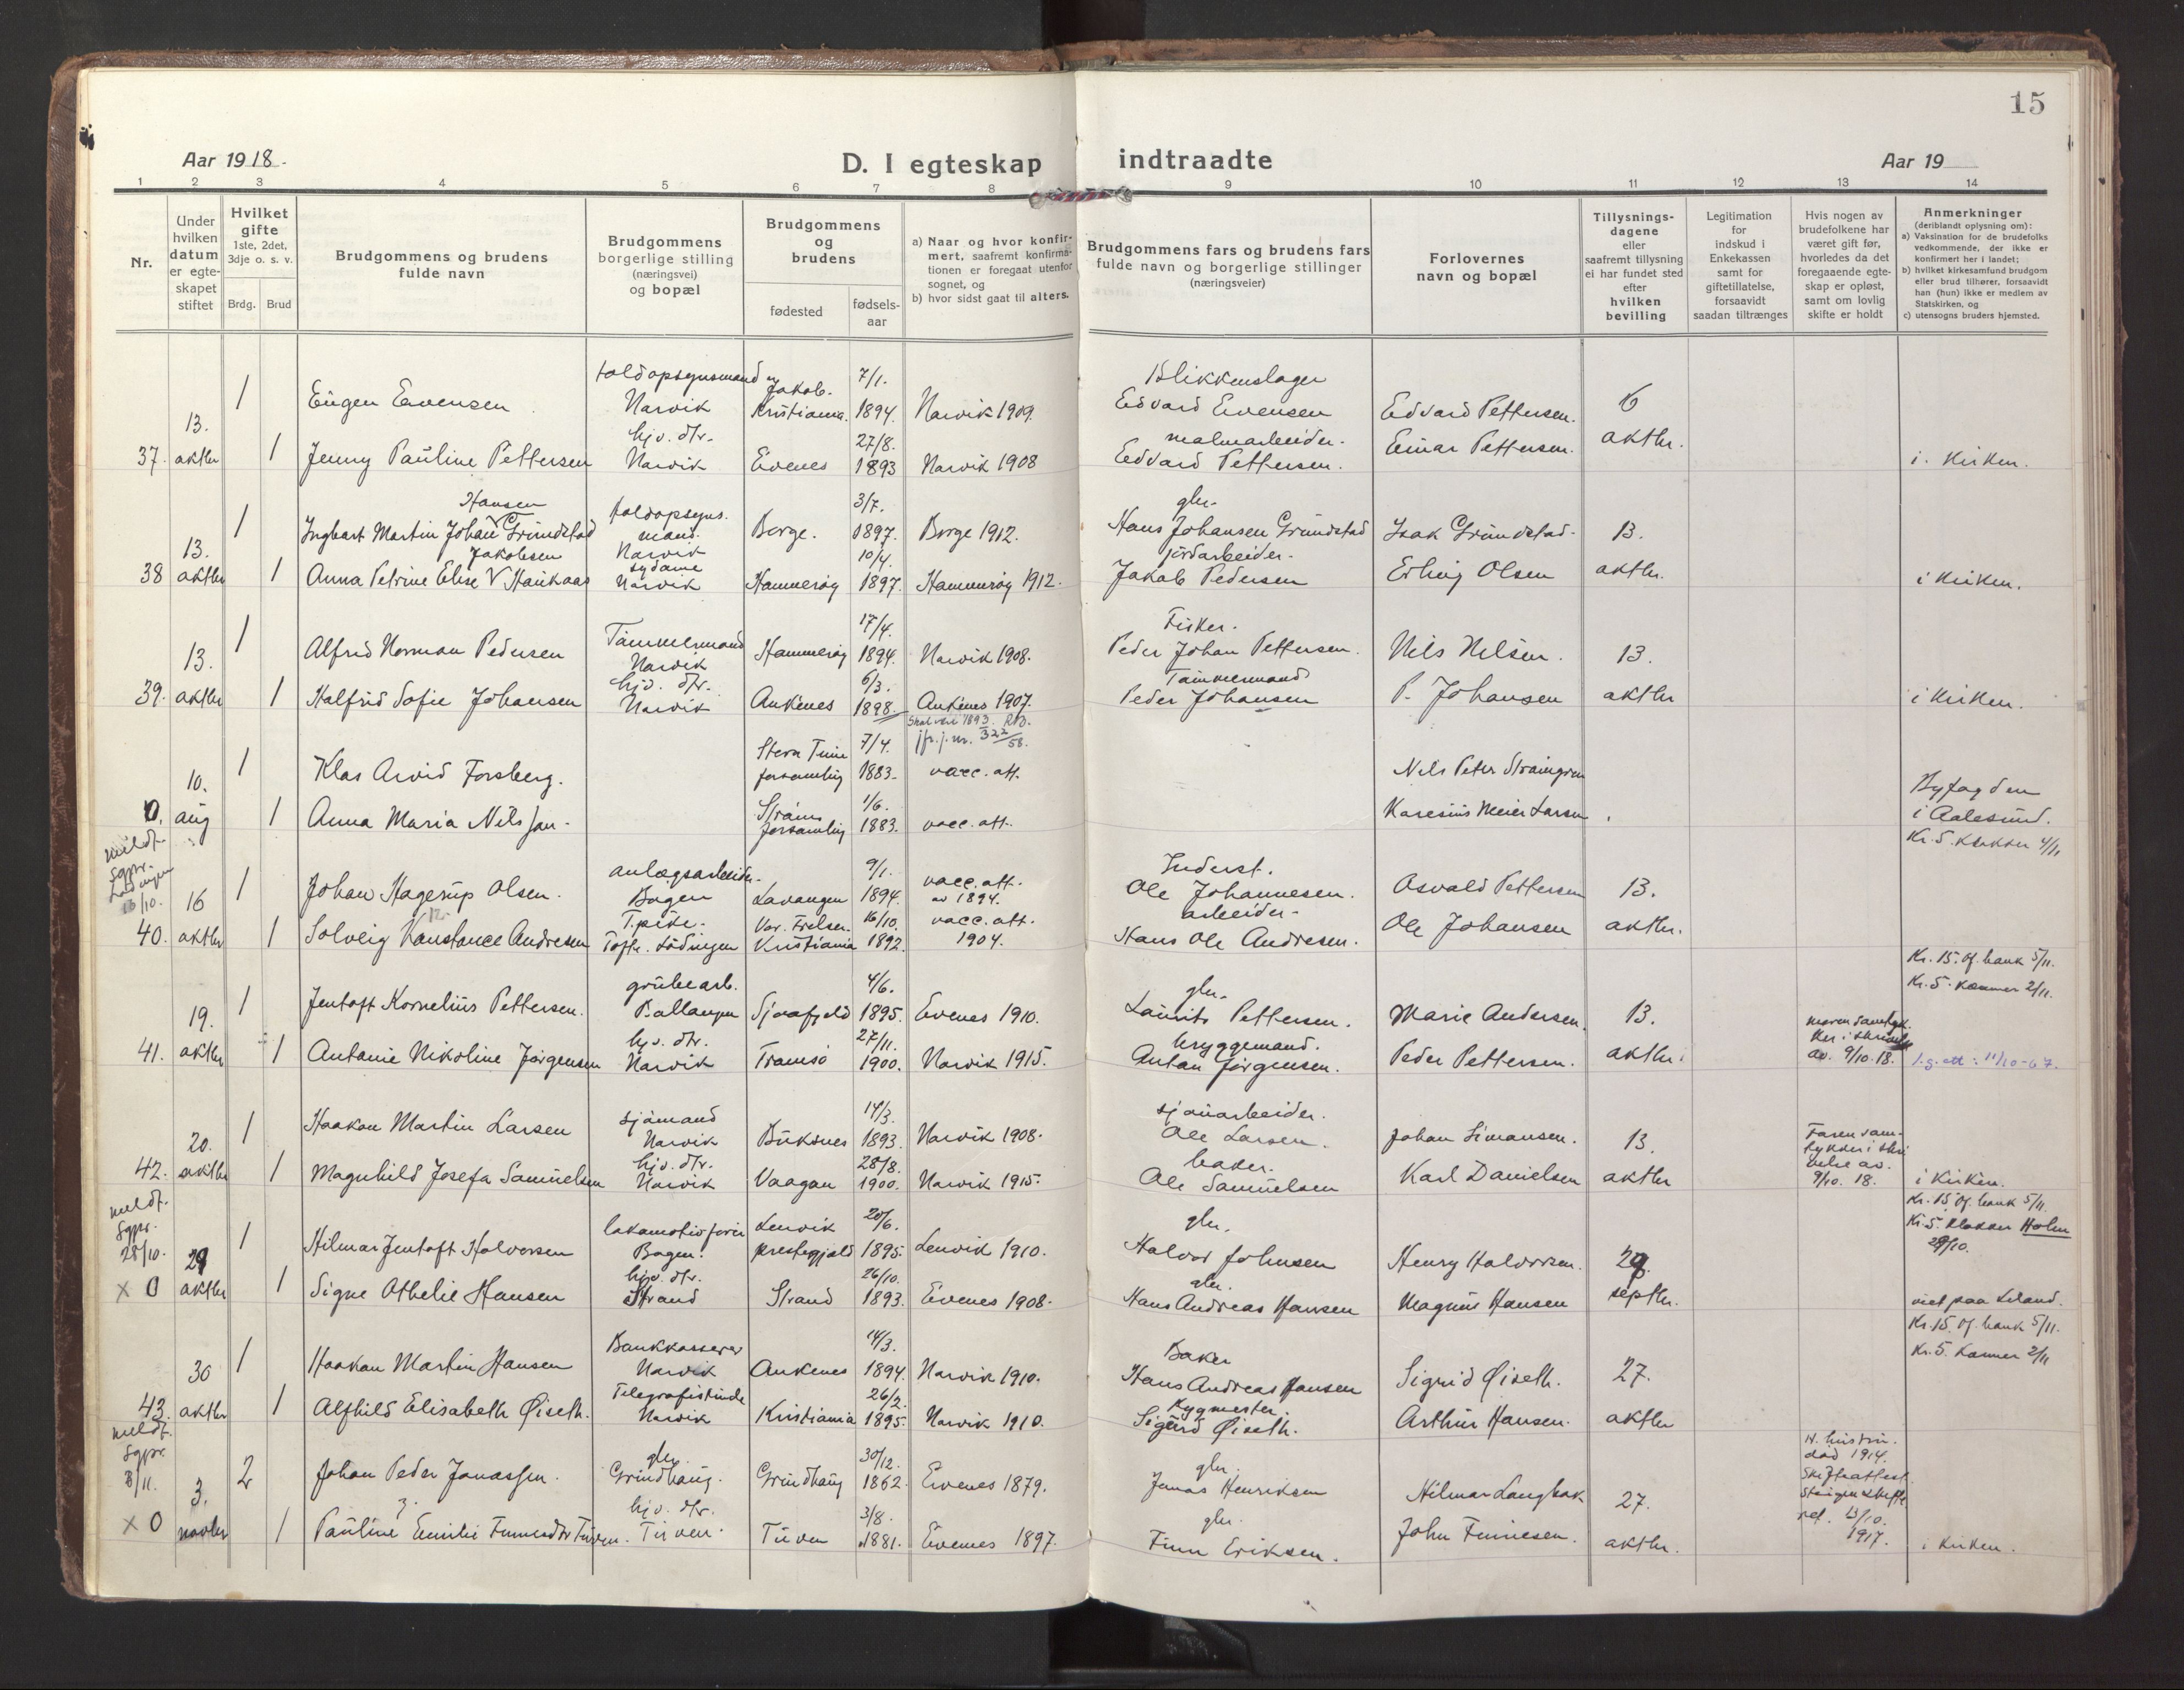 15
Aar 1918.
D. I egteskap indtraadte
Aar 19
1 2 3 4 5 6 7 8 9 10 11 12 13 14
Nr.
Under hvilken datum er egteskapet stiftet
Hvilket gifte 1ste, 2det, 3dje o. s. v.
Brdg. Brud
Brudgommens og brudens fulde navn
Brudgommens borgerlige stilling (næringsvei) og bopæl
Brudgommens og brudens
fødested
fødsels-aar
a) Naar og hvor konfirmert, saafremt konfirmationen er foregaat utenfor sognet, og
b) hvor sidst gaat til alters.
Brudgommens fars og brudens fars fulde navn og borgerlige stillinger (næringsveier)
Forlovernes navn og bopæl
Tillysningsdagene eller saafremt tillysning ei har fundet sted efter hvilken bevilling
Legitimation for indskud i Enkekassen samt for giftetillatelse, forsaavidt saadan tiltrænges
Hvis nogen av brudefolkene har været gift før, hvorledes da det foregaaende egteskap er opløst, samt om lovlig skifte er holdt
Anmerkninger (deriblandt oplysning om):
a) Vaksination for de brudefolks vedkommende, der ikke er konfirmert her i landet;
b) hvilket kirkesamfund brudgom eller brud tilhører, forsaavidt han (hun) ikke er medlem av Statskirken, og
c) utensogns bruders hjemsted.
37. 13. aktbr
1 Eugen Evensen toldopsynsmand Narvik Jakob. Kristiania 7/1. 1894. Narvik 1909. Blikkenslager Edvard Evensen Edvard Pettersen. 6 aktbr.
1 Jenny Pauline Pettersen hjv. dtr. Narvik Evenes 27/8. 1893 Narvik 1908 malmarbeider. Edvard Pettersen. Einar Pettersen. i Kirken.
38 13. aktbr
1 Ingbart Martin Johan Hansen Grundstad toldopsyns. mand. Narvik Borge. 3/7. 1897. Borge 1912. gbr. Hans Johansen Grundstad Isak Grundstad. 13. aktbr.
1 Anna Petrine Elise V Jakobsen Haukaas sydame Narvik Hammerøy 10/4. 1897. Hammerøy 1912. jordarbeider. Jakob Pedersen Erling Olsen i kirken.
39. 13. aktbr
1 Alfred Norman Pedersen Tømmermand Narvik Hammerøy 17/4. 1894. Narvik 1908. Fisker. Peder Johan Pettersen. Nils Nilsen. 13. aktbr
1 Halfrid Sofie Johansen hjv. dtr. Narvik Ankenes 6/3. 1898. Ankenes 1907. Tømmermand Peder Johansen P. Johansen i kirken.
Skal være 1893. R.D. jfr. j. nr. 322/58.
0. 10. aug
1 Klas Arvid Forsberg. Stora Tuna forsamling 7/4. 1883. vacc. att. Nels Peter
1 Anna Maria Nilsson. forsamling 1/6. 1883. vacc. att. Karesius Meier Larsen
Byfogden i Aalesund.
Kr. 5. klokker 4/11
meldt. Sgpr. Lødingen 13/10.
40. 16 aktbr
1 Johan Hagerup Olsen. anlægsarbeider. Bogen Lavangen 9/1. 1894. vacc. att. av 1894. Inderst. Ole Johannesen. Osvald Pettersen 13. aktbr.
1 Solveig Konstance Andresen T.pike. Lødingen Vor. Frelser. Kristiania 16/10. 1892. vacc. att. 1904. arbeider. Hans Ole Andresen. Ole Johansen
Kr. 15. Of. bank 5/11.
Kr. 5. Kanner 2/11.
41. 19. aktbr
1 Jentoft Kornelius Pettersen. grubearb. Ballangen Sjaafjeld 4/6. 1895. Evenes 1910. gbr. Laurits Pettersen. Marie Andersen. 13. aktbr.
1 Antonie Nikoline Jørgensen hj. dtr. Narvik Tromsø 27/11. 1900. Narvik 1915. bryggemand. Anton Jørgensen. Peder Pettersen.
av. 9/10. 18. l.g. att: 11/10-67.
42. 20. aktbr
1 Haakon Martin Larsen sjømand Narvik Buksnes 14/3. 1893. Narvik 1908. sjauarbeider. Ole Larsen. Johan Simonsen. 13. aktbr
1 Magnhild Josefa Samuelsen hjv. dtr. Narvik Vaagan 28/8. 1900. Narvik 1915. baker. Ole Samuelsen Karl Danielsen
Faren samtykker i skrivelse av. 9/10. 18. i kirken.
Kr. 15. Of. bank 5/11.
Kr. 5. klokker Holm 29/10.
meldt. Sgpr. 28/10.
x 0 29 aktbr
1 Hilmar Jentoft Halvorsen Bogen. Lenvik prestegjeld 20/6. 1895. Lenvik 1910. gbr. Halvor Johnsen Henry Halvorsen. 29. septbr.
1 Signe Othelie Hansen hjv. dtr. Strand Strand 26/10. 1893. Evenes 1908. gbr. Hans Andreas Hansen Magnus Hansen viet paa Liland.
Kr. 15. Of. bank 5/11.
Kr. 5. Kanner 2/11
43. 30 aktbr
1 Haakon Martin Hansen Bankkasserer Narvik Ankenes 14/3. 1894. Narvik 1910. Baker Hans Andreas Hansen Sigrid Øiseth. 27. aktbr
1 Alfhild Elisabeth Øiseth. Telegrafistinde Narvik Kristiania 26/2. 1895. Narvik 1910. Bygmester. Sigurd Øiseth. Arthur Hansen.
meldt. Sgpr. 8/11.
x 0 3. novbr
2 Johan Peder Jonassen. gbr. Grindhaug. Grindhaug 30/12. 1862. Evenes 1879. gbr. Jonas Henriksen Hilmar Langbak 27. aktbr.
1 Pauline Emilie Tuven. hjv. dtr. Tuven. Tuven 3/8. 1881. Evenes 1897. gbr. Finn Eriksen. John Finnesen.
H. hustru. død 1914. 13/10. 1917. i kirken.